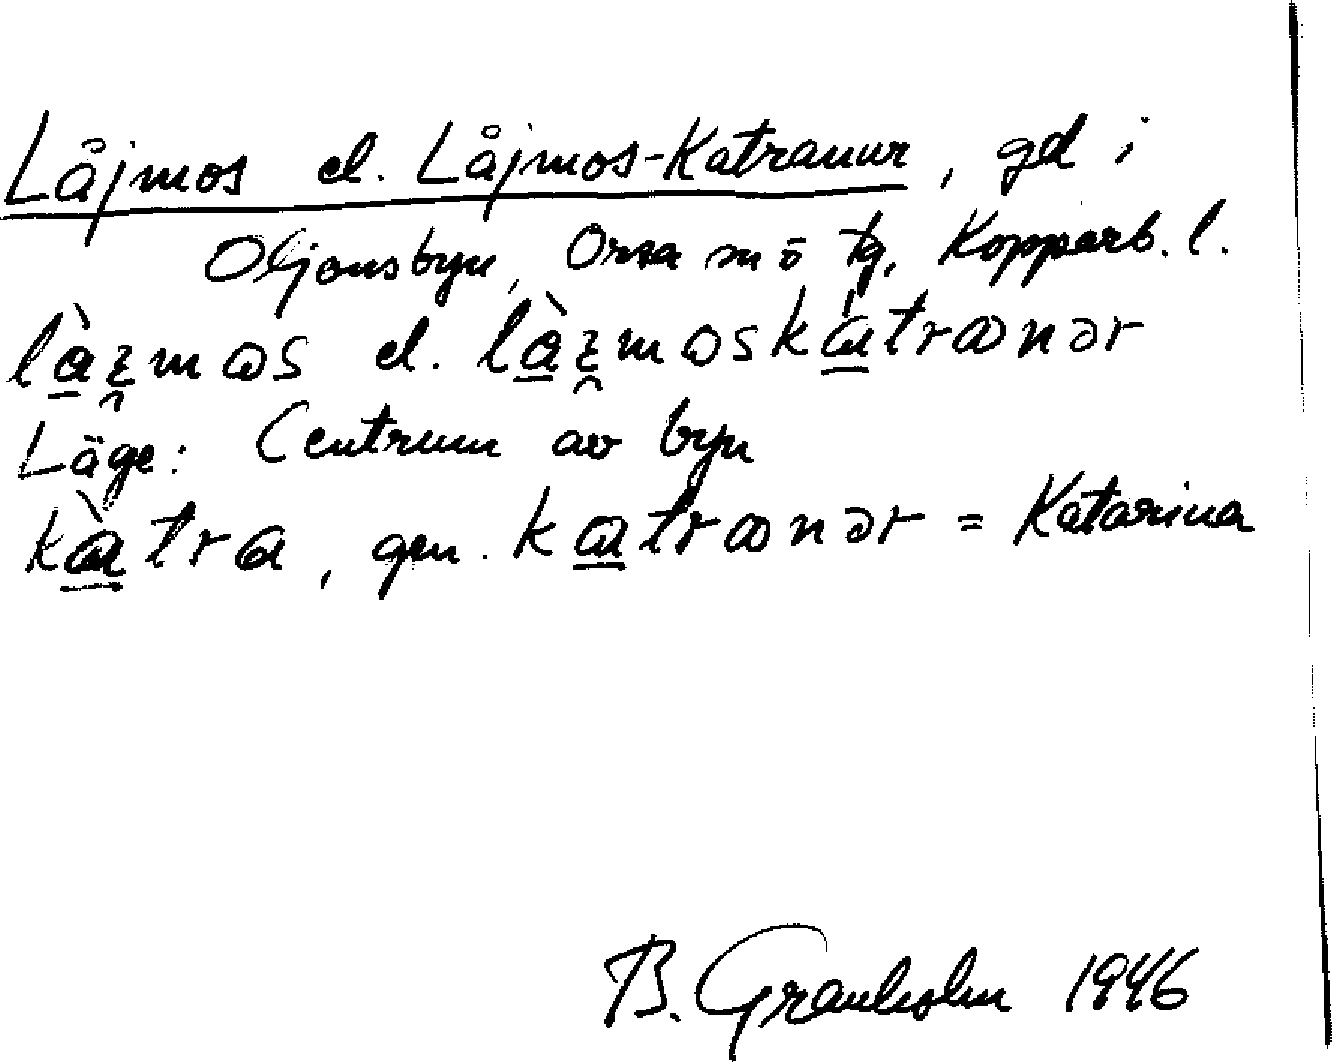 Låjmos el. Låjmos-Katranur, gd i
Oljonsbyn, Orsa sn ö tg, Kopparb. l.
làɪ̯mɷs el. làɪ̯mɷskátranər
Läge: Centrum av byn
kàtra, gen. katranər = Katarina
B. Granholm 1946